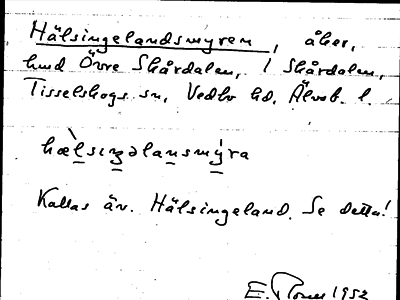 Hälsingelandsmyren, åker,
hmd Övre Skårdalen, 1 Skårdalen,
Tisselskogs sn, Vedbo hd, Älvsb. l.
hælsiŋəlansmýra
Kallas äv. Hälsingeland. Se detta!
E. 1952